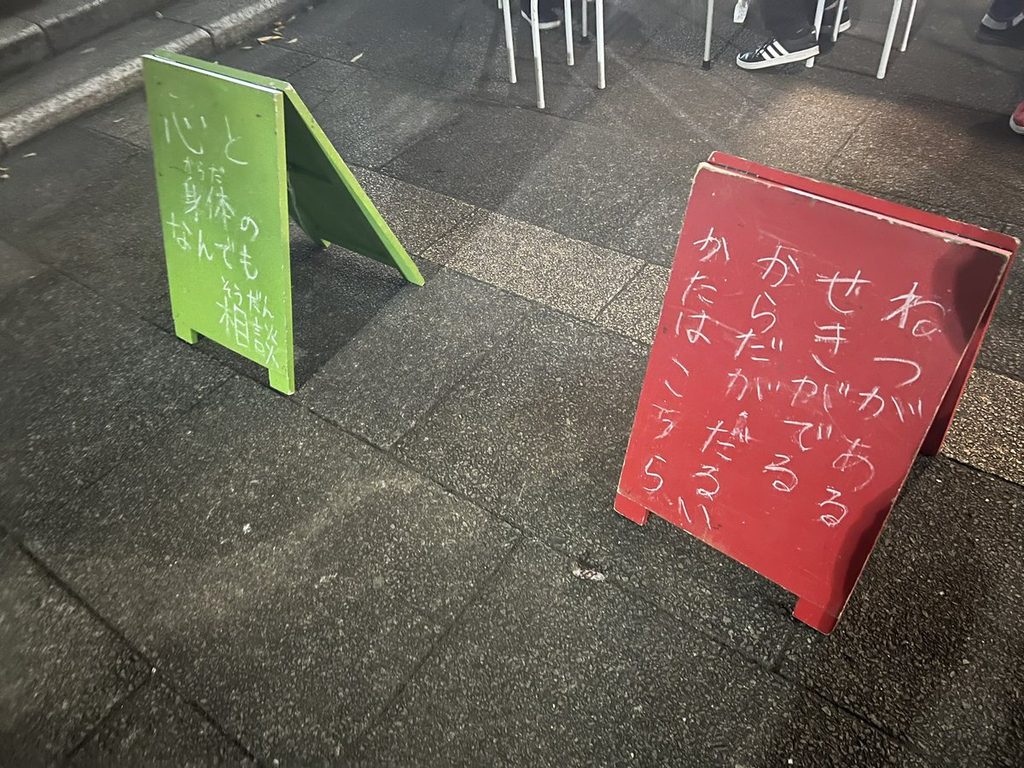 心と
からだ
身体の
なんでも
そうだん
相談
ねつがある
せきがでる
からだがだるい
かたはこちら